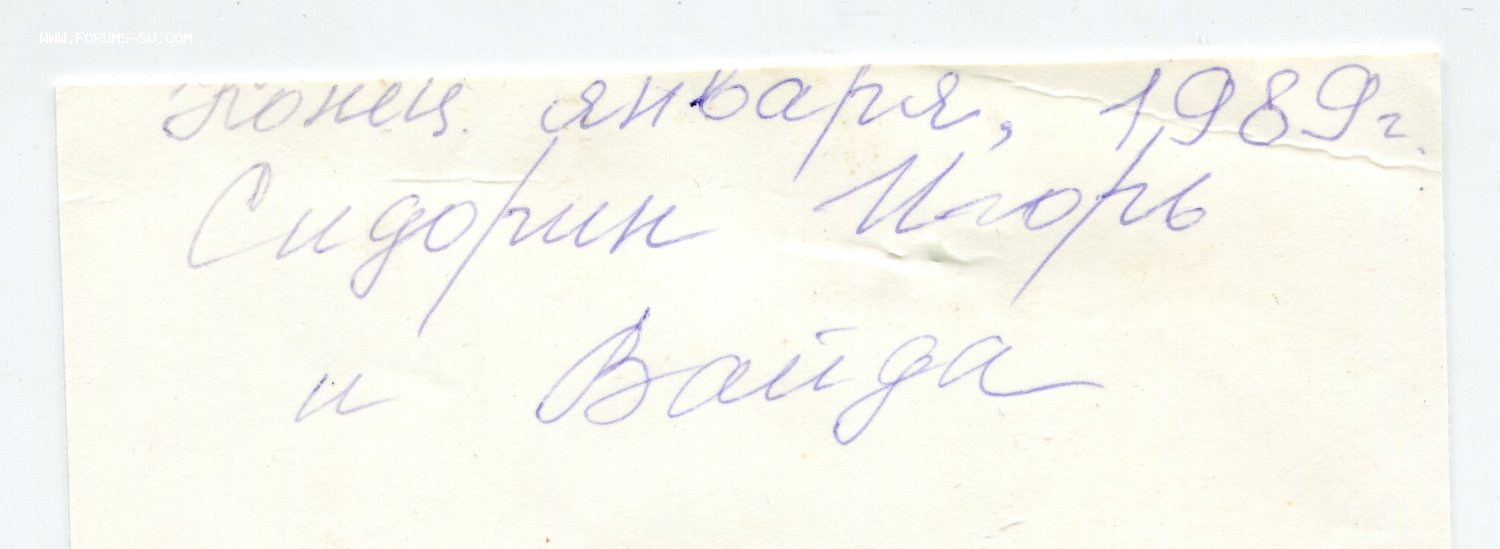 WWW.FORUMS-SU.COM
Конец января, 1989г.
Сидорин Игорь
и Вайда